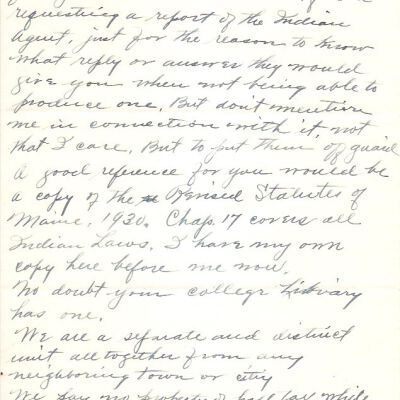 requesting a report of the Indian
Agent, just for the reason to know
what reply or answer they would
give you when not being able to
produce one. But don't mention
me in connection with it, not
that I care, But to put them of guard
A good reference for you would be
a copy of the Revised Statutes of
Maine, 1930. Chap. 17 covers all
Indian Laws. I have my own
copy here before me now.
No doubt your college Library
has one.
We are a separate and distinct
unit alltogether from any
neighboring town or city
We pay no property or poll tax while